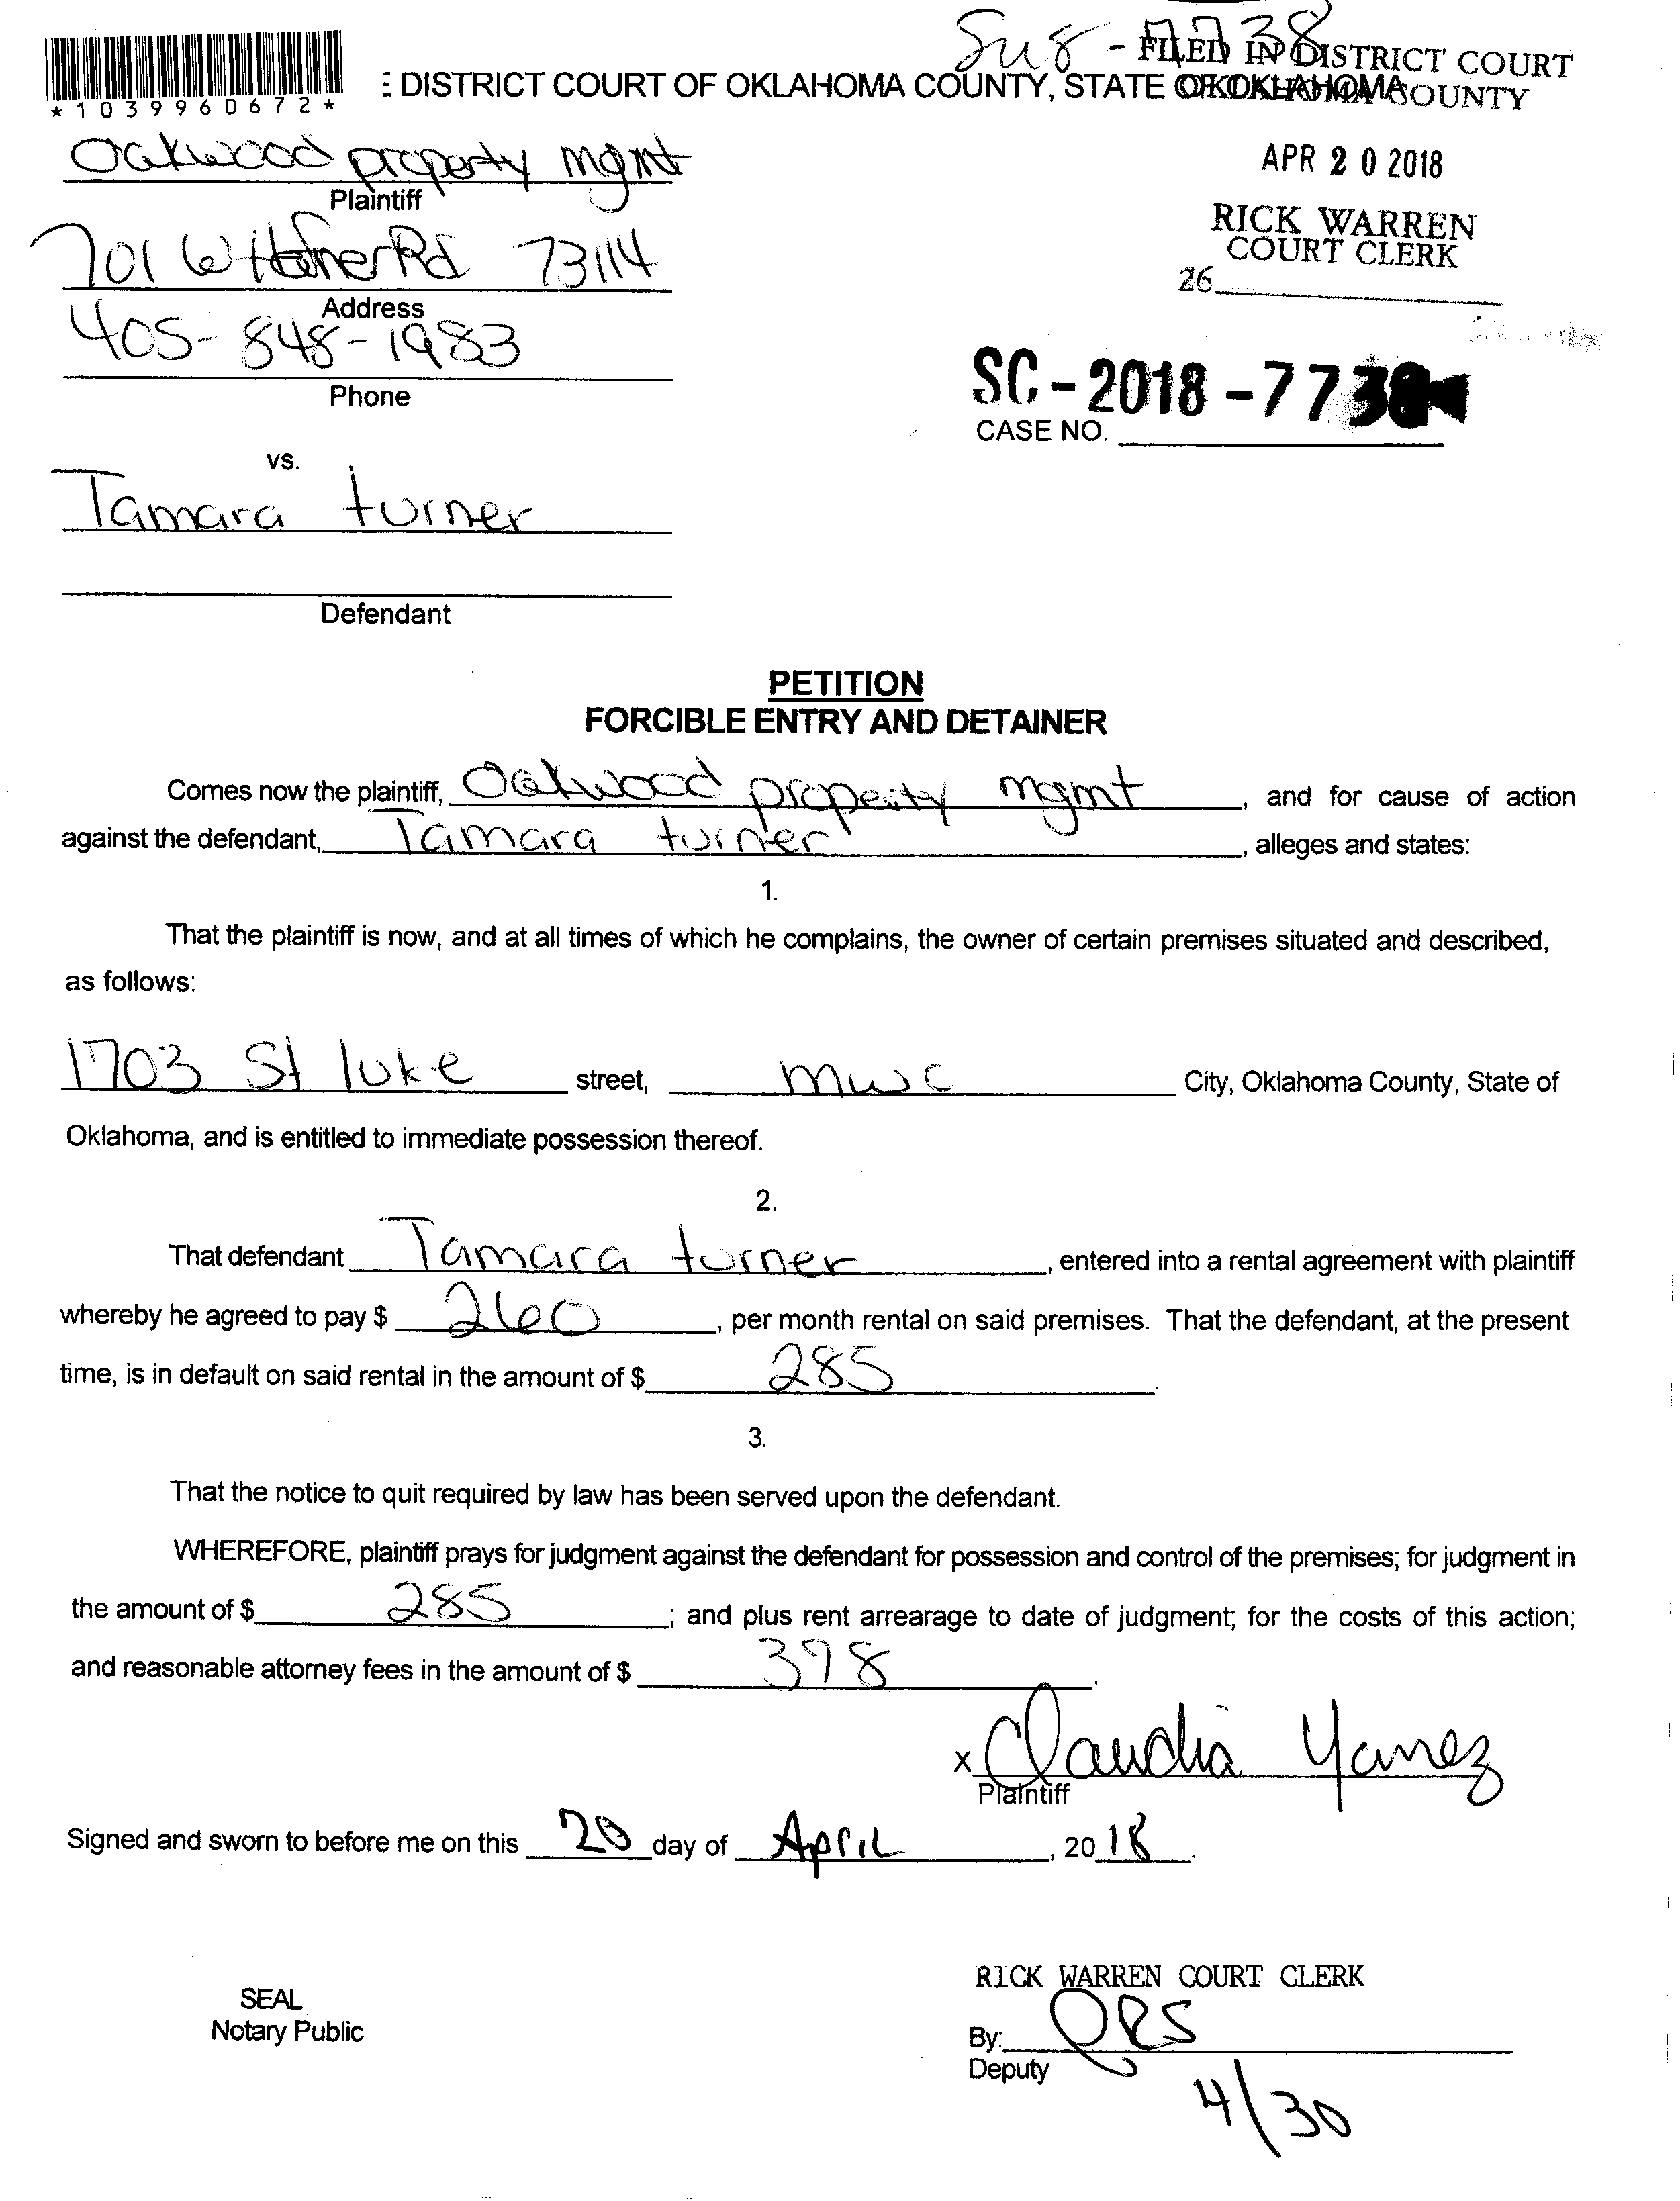 Su8-7738
FILED IN DISTRICT COURT
E DISTRICT COURT OF OKLAHOMA COUNTY, STATE OF OKLAHOMA
OKLAHOMA COUNTY
*1039960672*
Oakwood property mgmt
Plaintiff
APR 20 2018
RICK WARREN
COURT CLERK
26
701 W Hefner Rd 73114
Address
405-848-1983
Phone
SC-2018-7738
CASE NO.
vs.
Tamara turner
Defendant
PETITION
FORCIBLE ENTRY AND DETAINER
Comes now the plaintiff, Oakwood property mgmt, and for cause of action
against the defendant, Tamara turner, alleges and states:
1.
That the plaintiff is now, and at all times of which he complains, the owner of certain premises situated and described,
as follows:
1703 St luke street, mwc City, Oklahoma County, State of
Oklahoma, and is entitled to immediate possession thereof.
2.
That defendant Tamara turner, entered into a rental agreement with plaintiff
whereby he agreed to pay $ 260, per month rental on said premises. That the defendant, at the present
time, is in default on said rental in the amount of $ 285.
3.
That the notice to quit required by law has been served upon the defendant.
WHEREFORE, plaintiff prays for judgment against the defendant for possession and control of the premises; for judgment in
the amount of $ 285; and plus rent arrearage to date of judgment; for the costs of this action;
and reasonable attorney fees in the amount of $ 398.
x Claudia Yanez
Plaintiff
Signed and sworn to before me on this 20 day of April, 2018.
SEAL
Notary Public
RICK WARREN COURT CLERK
By:
Deputy
4/30